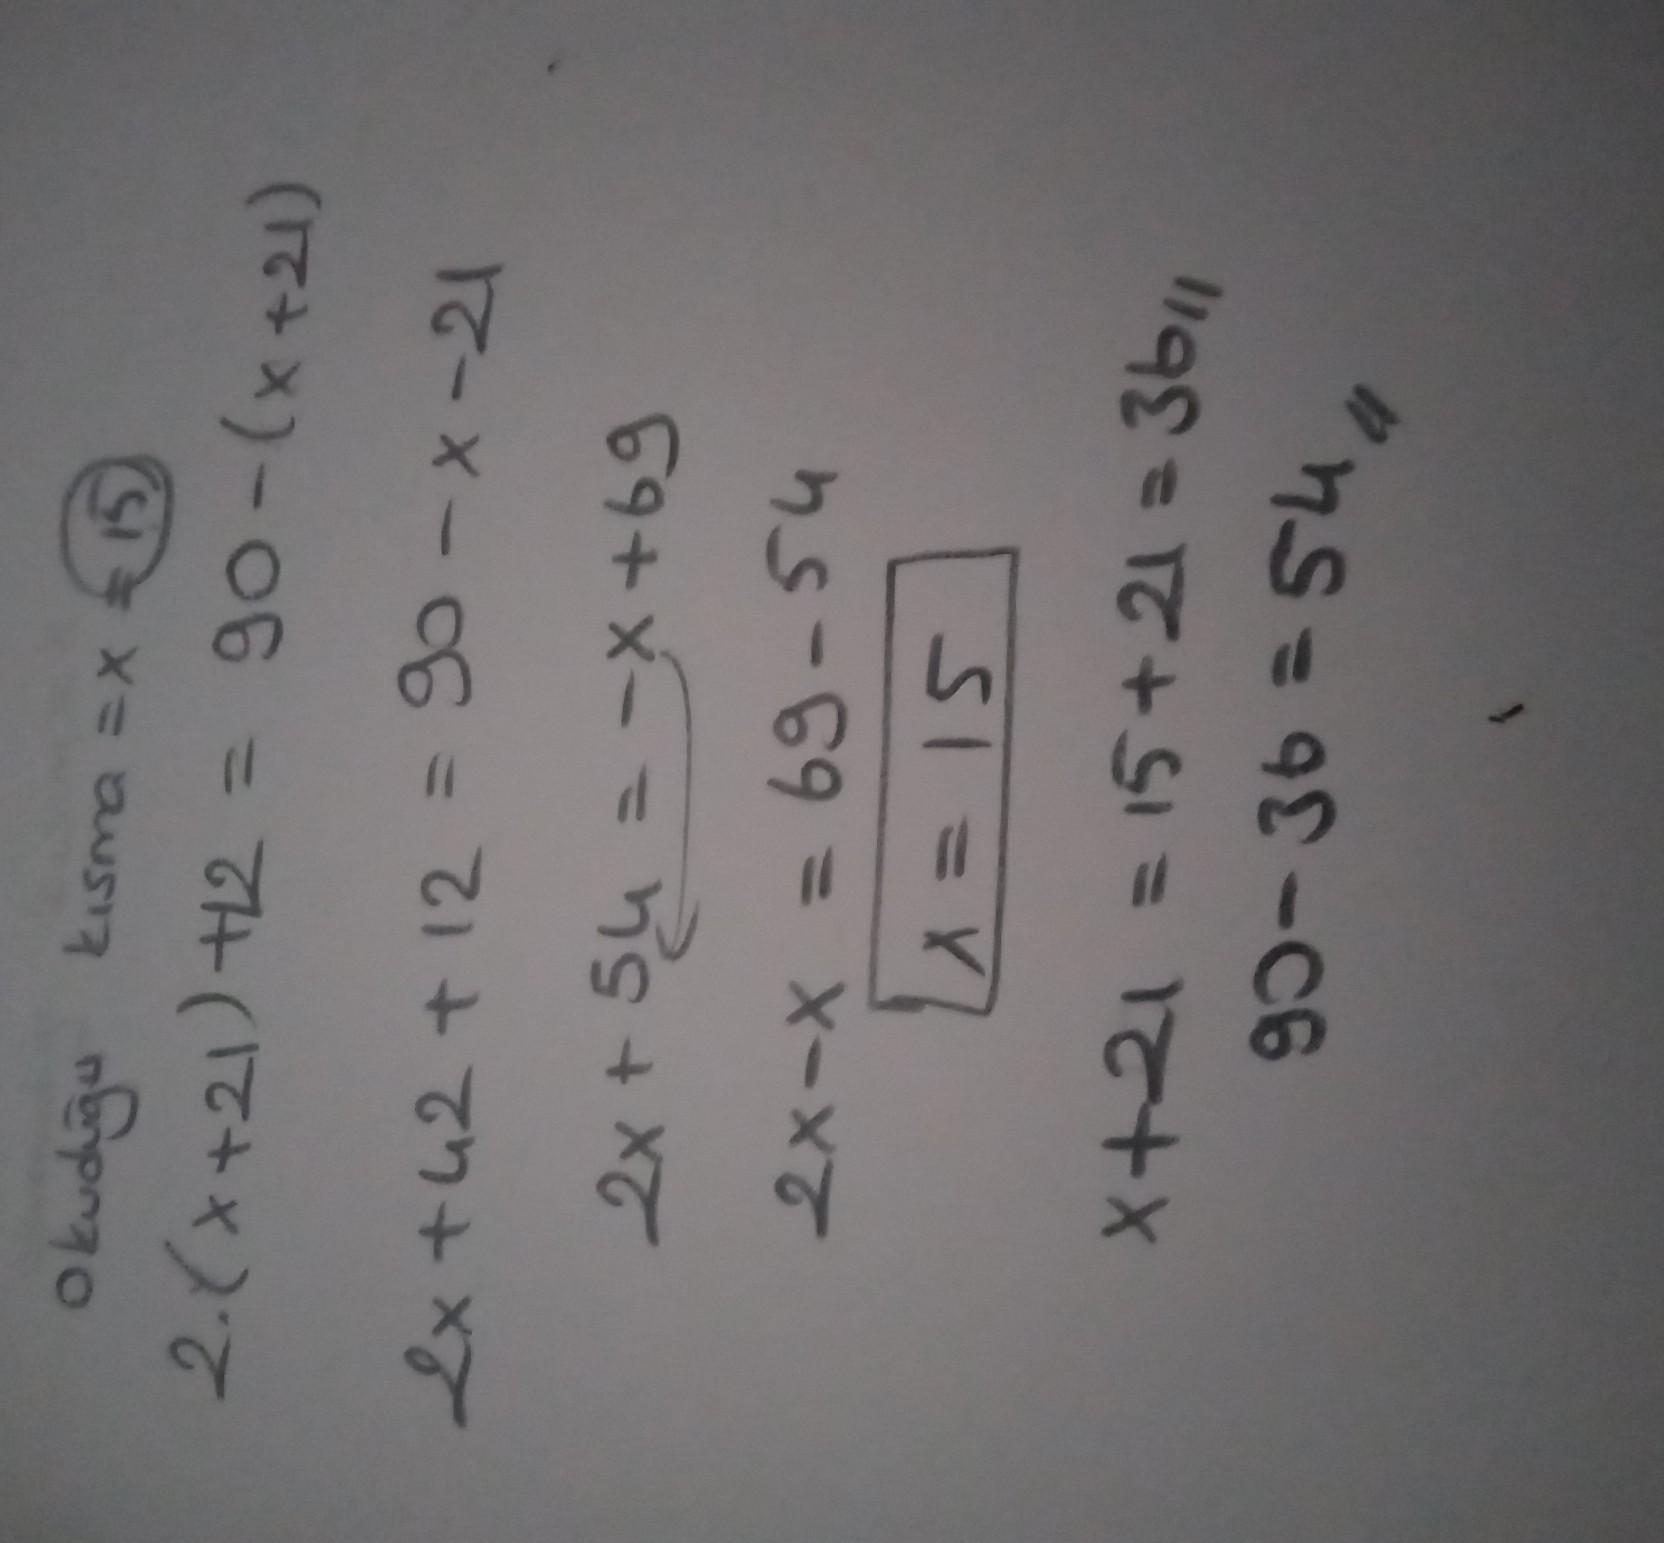 okuduğu kısma = x = 15
2.(x+21)+12 = 90-(x+21)
2x+42+12 = 90-x-21
2x+54 = -x+69
2x-x = 69-54
x = 15
x+21 = 15+21 = 36//
90-36 = 54//